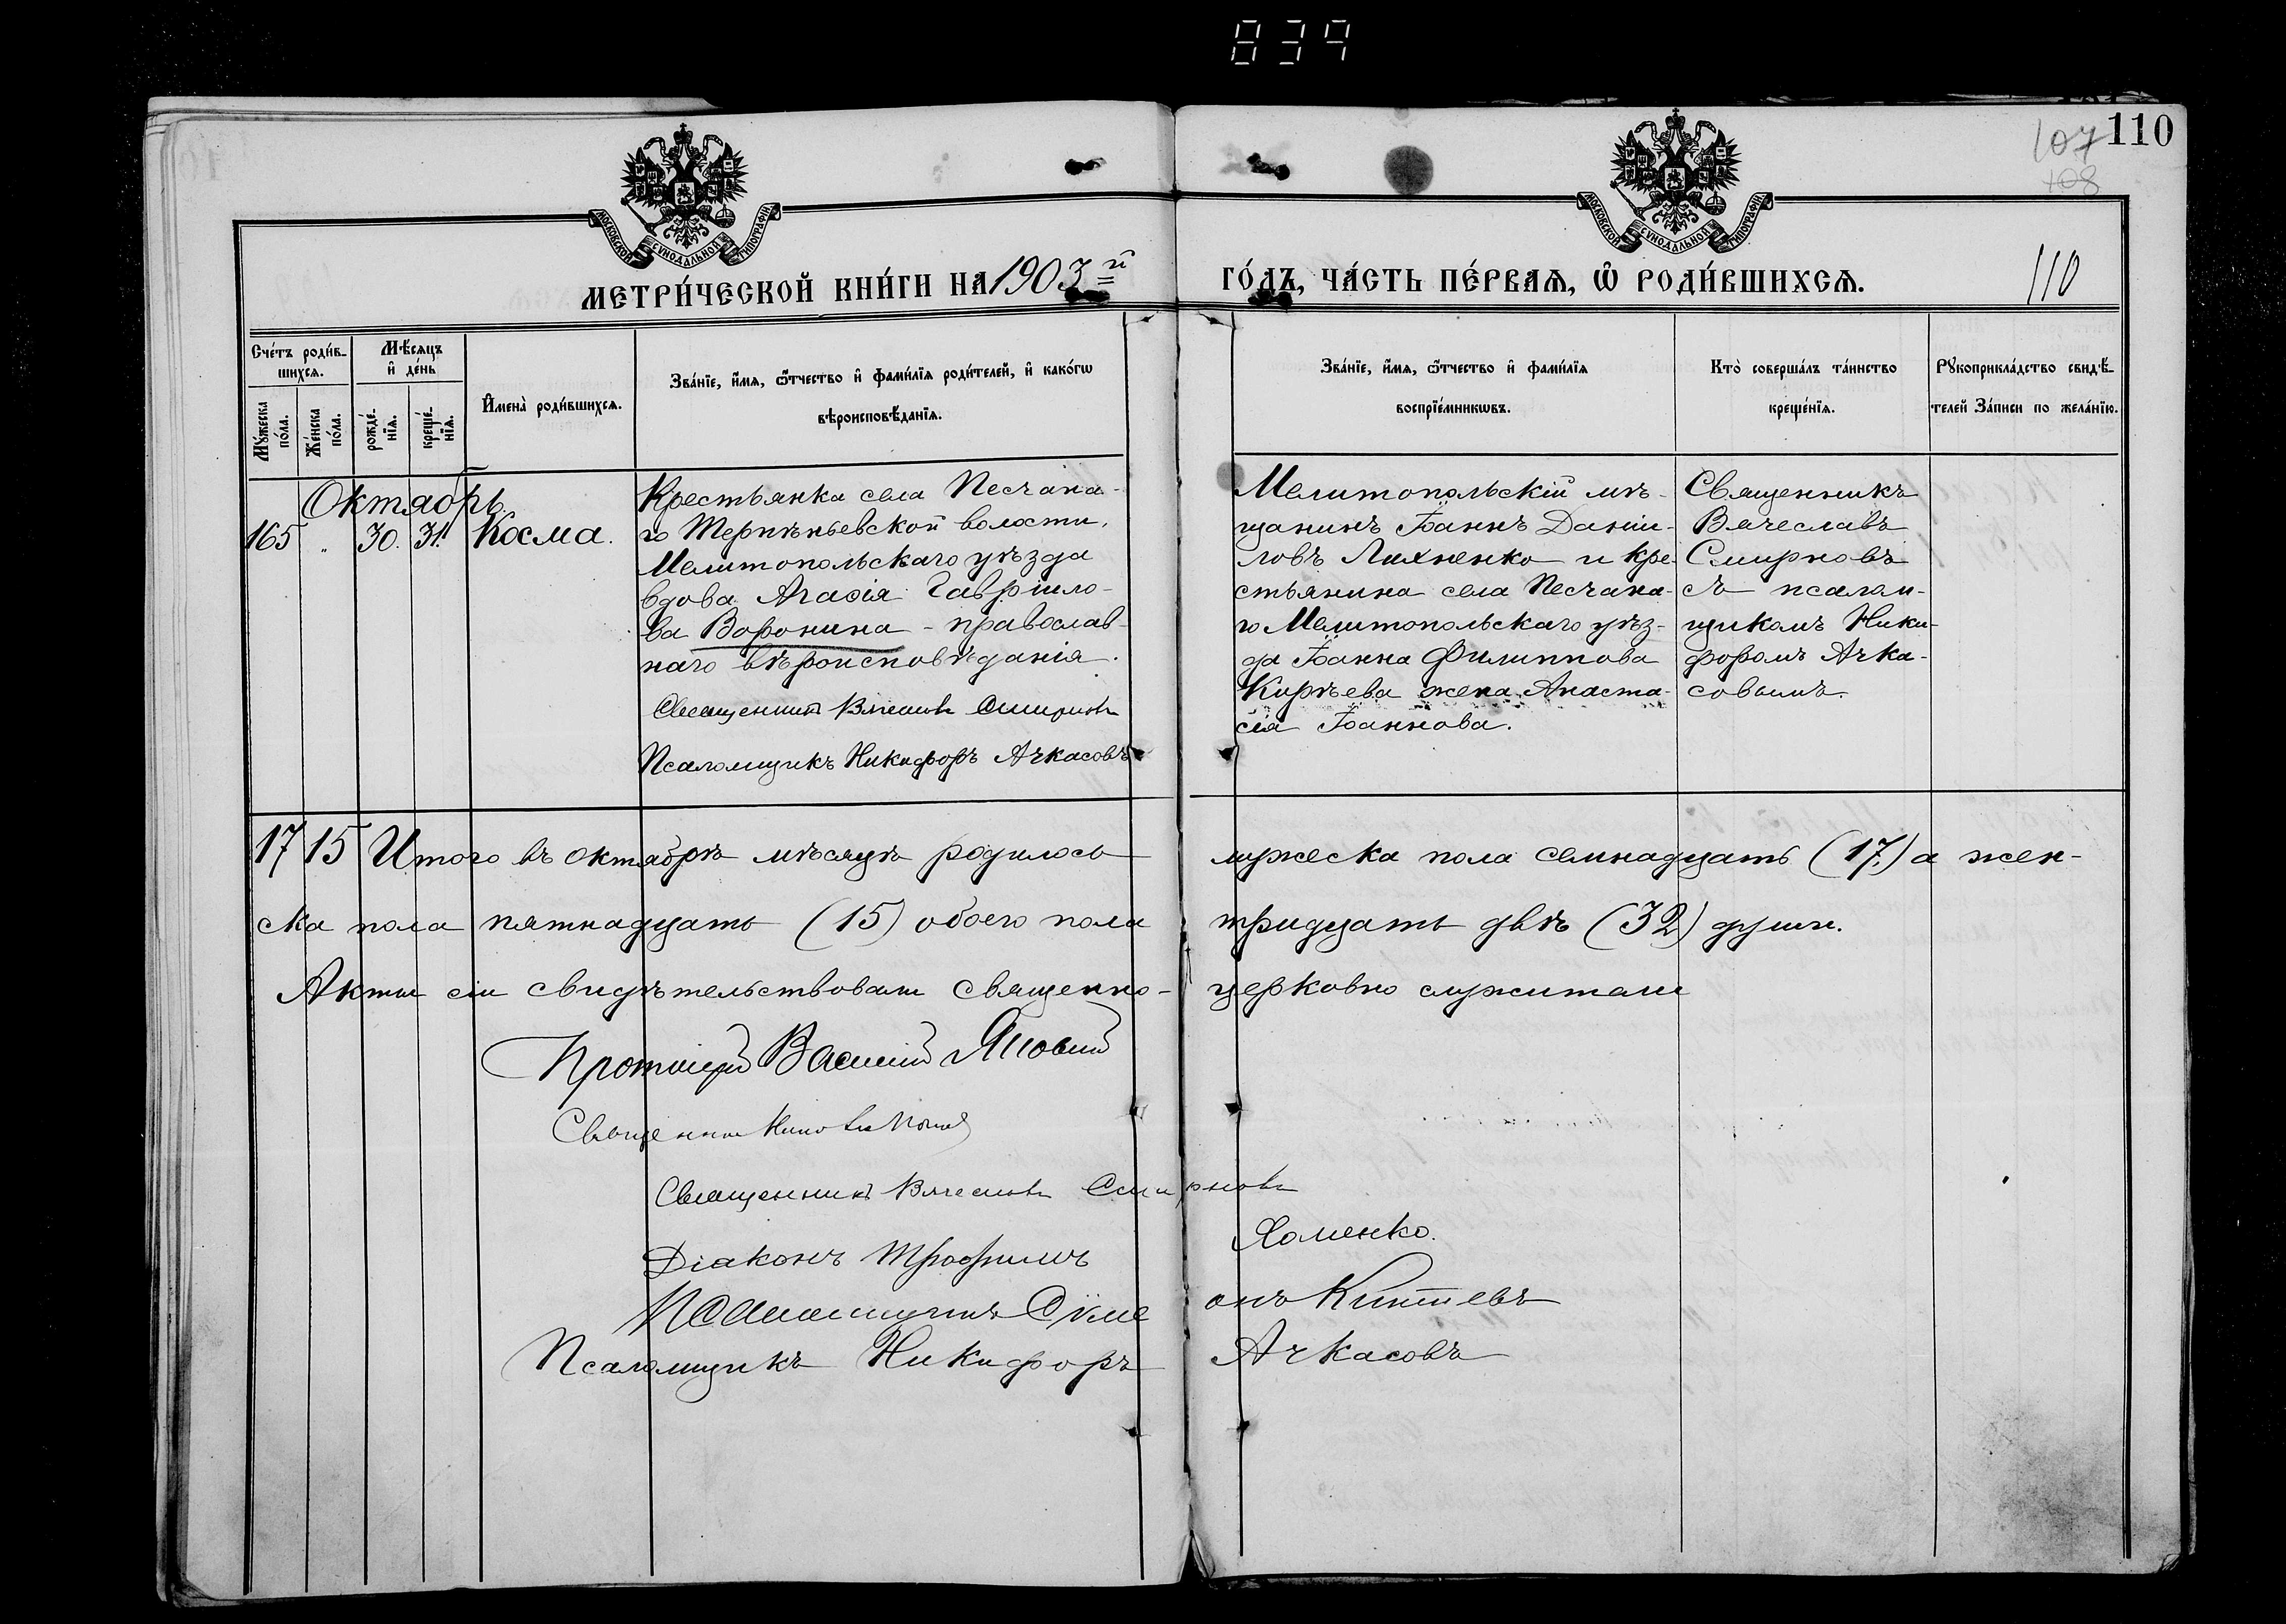 839
107 110
108
МОСКОВСКОЙ СУНОДАЛЬНОЙ ТИПОГРАФІИ
МОСКОВСКОЙ СУНОДАЛЬНОЙ ТИПОГРАФІИ
МЕТРИ́ЧЕСКОЙ КНИ́ГИ НА 1903й ГО́ДЪ, ЧА́СТЬ ПЕ́РВАѦ, Ѡ҆ РОДИ́ВШИХСѦ.
110
Сче́тъ роди́в-
шихсѧ.
Мѣ́сѧцъ
и҆ де́нь
Мꙋ́жеска
по́ла.
Же́нска
по́ла.
рожде́-
нїѧ.
креще́-
нїѧ.
И҆мена̀ роди́вшихсѧ.
Зва́нїе, и҆́мѧ, ѻ҆́тчество и҆ фами́лїѧ роди́телей, и҆ како́гѡ
вѣроисповѣ́данїѧ.
Зва́нїе, и҆́мѧ, ѻ҆́тчество и҆ фами́лїѧ
воспрїе́мникѡвъ.
Кто̀ соверша́лъ та́инство
креще́нїѧ.
Рꙋкоприкла́дство свидѣ́-
телей За́писи по жела́нїю.
Октябрь
165 „ 30. 31. Косма.
Крестьянка села Песчана-
го Терпѣньевской волости,
Мелитопольскаго уѣзда
вдова Агафія Гавріило-
ва Воронина - православ-
наго вѣроисповѣданія.
Священникъ Вячеславъ Смирновъ
Псаломщикъ Никифоръ Ачкасовъ
Мелитопольскій мѣ-
щанинъ Іоаннъ Даніи-
ловъ Лихненко и кре-
стьянина села Песчана-
го Мелитопольскаго уѣз-
да Іоанна Филиппова
Кирѣева жена Анаста-
сія Іоаннова.
Священникъ
Вячеславъ
Смирновъ
съ псалом-
щикомъ Ники-
форомъ Ачка-
совымъ.
17 15 Итого въ октябрѣ мѣсяцѣ родилось мужеска пола семнадцать (17.) а жен-
ска пола пятнадцать (15) обоего пола тридцать двѣ (32) души.
Акты сіи свидѣтельствовали священно-церковно служители
Протоіерей Василій Яновскій
Священникъ
Священникъ Вячеславъ Смирновъ
Діаконъ Трофимъ Хоменко.
Псаломщикъ Сѵмеонъ
Псаломщикъ Никифоръ Ачкасовъ